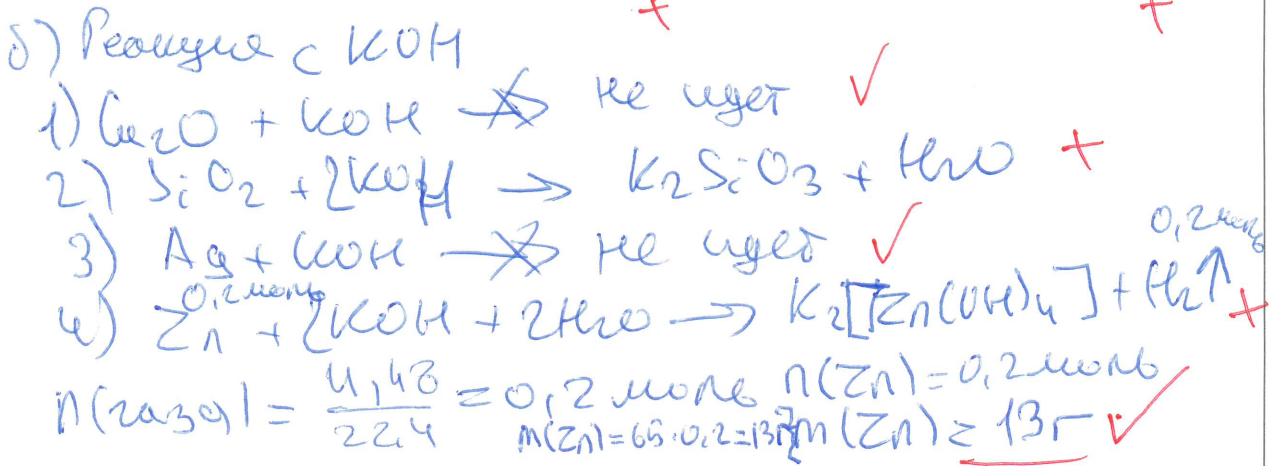 + +
б) Реакция с KOH
1) Cu2O + KOH -x-> не идет ✓
2) SiO2 + 2KOH → K2SiO3 + H2O +
3) Ag + KOH -x-> не идет ✓
0,2 моль 0,2 моль
4) Zn + 2KOH + 2H2O → K2[Zn(OH)4] + H2↑ +
n(газа) = 4,48/22,4 = 0,2 моль n(Zn) = 0,2 моль
m(Zn) = 65·0,2 = 13г m(Zn) = 13г ✓